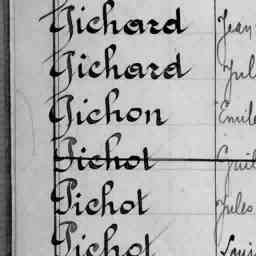 Pichard Jean
Pichard Jul
Pichon Emile
Pichot Guil
Pichot Jules
Pichot Loui